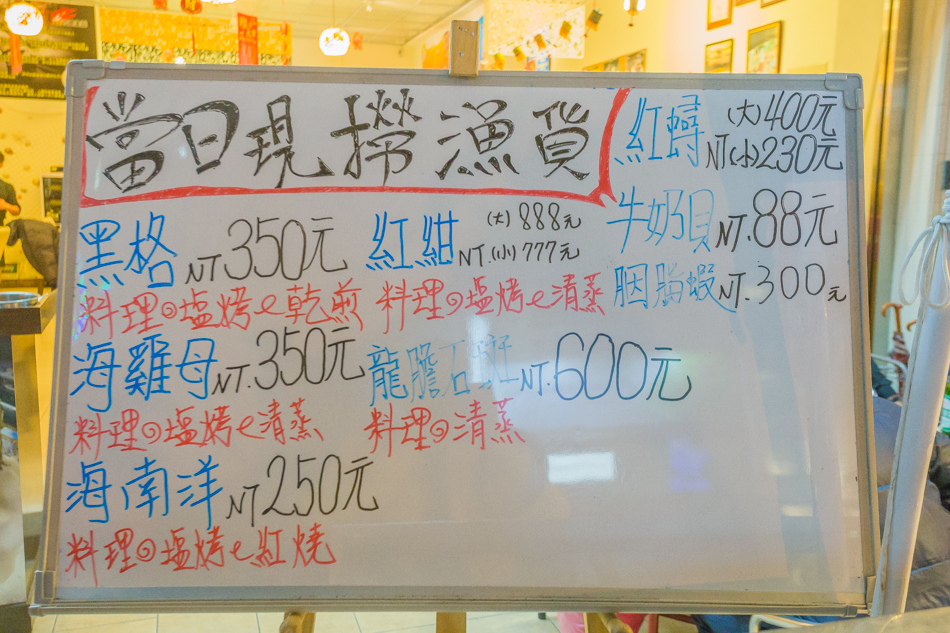 當日現撈漁貨
黑格 NT 350元
料理◎塩烤e乾煎
海雞母 NT. 350元
料理◎塩烤e清蒸
海南洋 NT 250元
料理◎塩烤e紅燒
紅紺 (大) 888元
NT. (小) 777元
料理◎塩烤e清蒸
龍膽石斑 NT. 600元
料理◎清蒸
紅蟳 (大) 400元
NT (小) 230元
牛奶貝 NT. 88元
胭脂蝦 NT. 300元